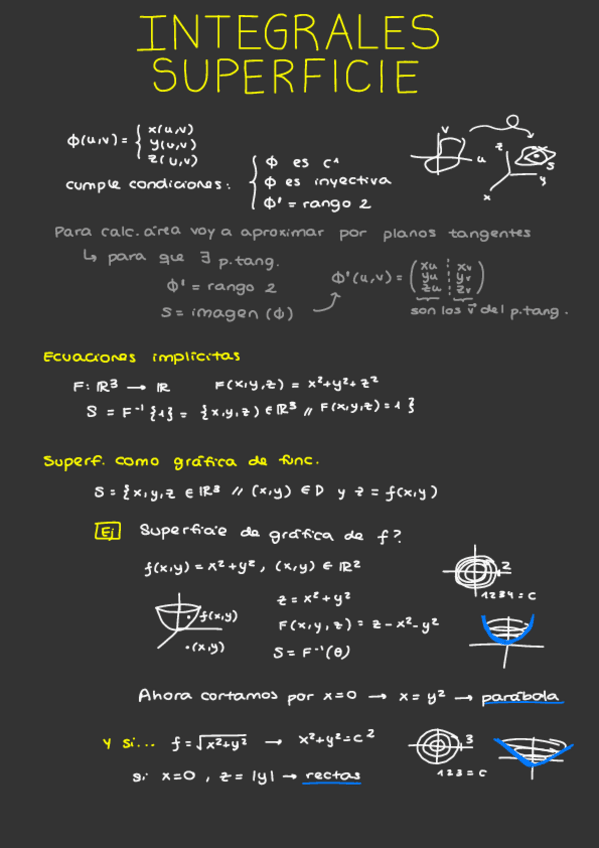 INTEGRALES
SUPERFICIE
ϕ(u,v) = { x(u,v)
y(u,v)
z(u,v)
cumple condiciones: { ϕ es C¹
ϕ es inyectiva
ϕ' = rango 2
v
u
z
y
x
S
Para calc. área voy a aproximar por planos tangentes
↳ para que ∃ p.tang.
ϕ' = rango 2
S = imagen (ϕ)
ϕ'(u,v) = ( xu xv
yu yv
zu zv )
son los v⃗ del p.tang.
Ecuaciones implícitas
F: ℝ³ → ℝ F(x,y,z) = x²+y²+z²
S = F⁻¹{1} = {x,y,z) ∈ ℝ³ // F(x,y,z) = 1}
Superf. como gráfica de func.
S = {x,y,z ∈ ℝ³ // (x,y) ∈ D y z = f(x,y)
Ej Superficie de gráfica de f?
f(x,y) = x²+y², (x,y) ∈ ℝ²
2
1 2 3 4 = C
z = x²+y²
f(x,y)
F(x,y,z) = z-x²-y²
(x,y)
S = F⁻¹(0)
Ahora cortamos por x=0 → x = y² → parábola
Y si... f = √x²+y² → x²+y² = c²
3
1 2 3 = C
si x=0, z = |y| → rectas